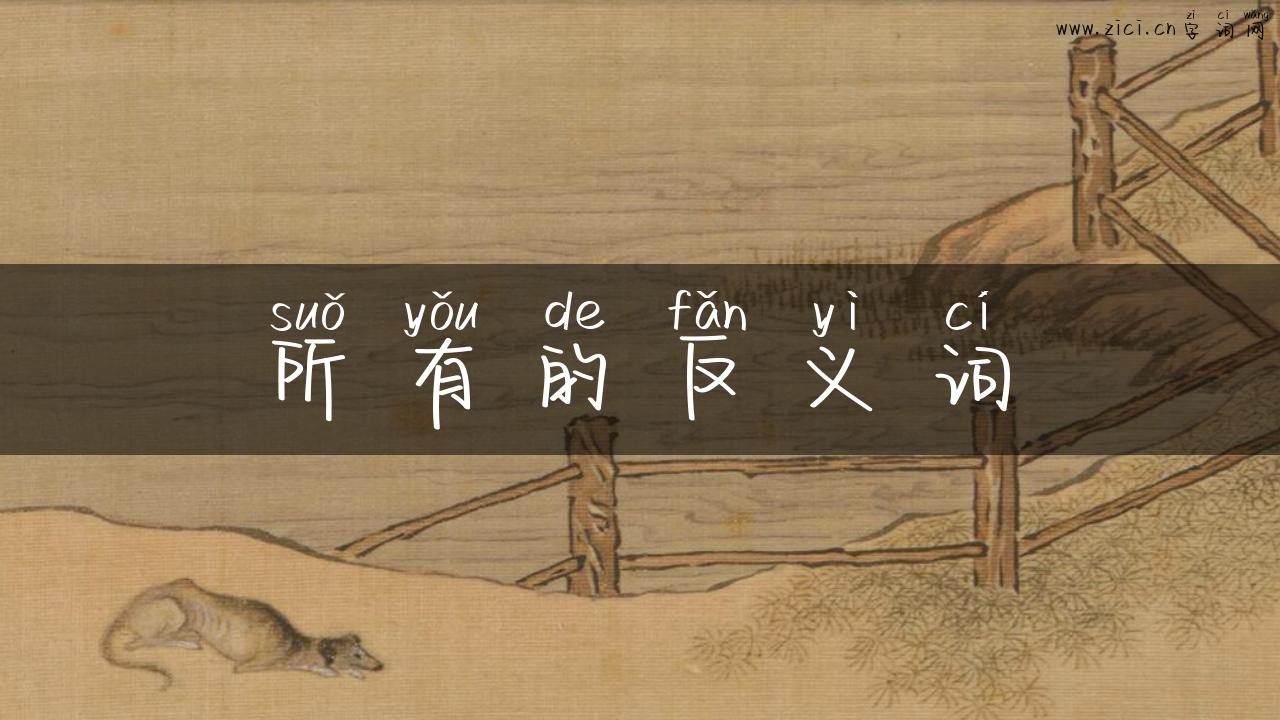 zì cí wǎng
www.zici.cn 字词网
suǒ yǒu de fǎn yì cí
所有的反义词